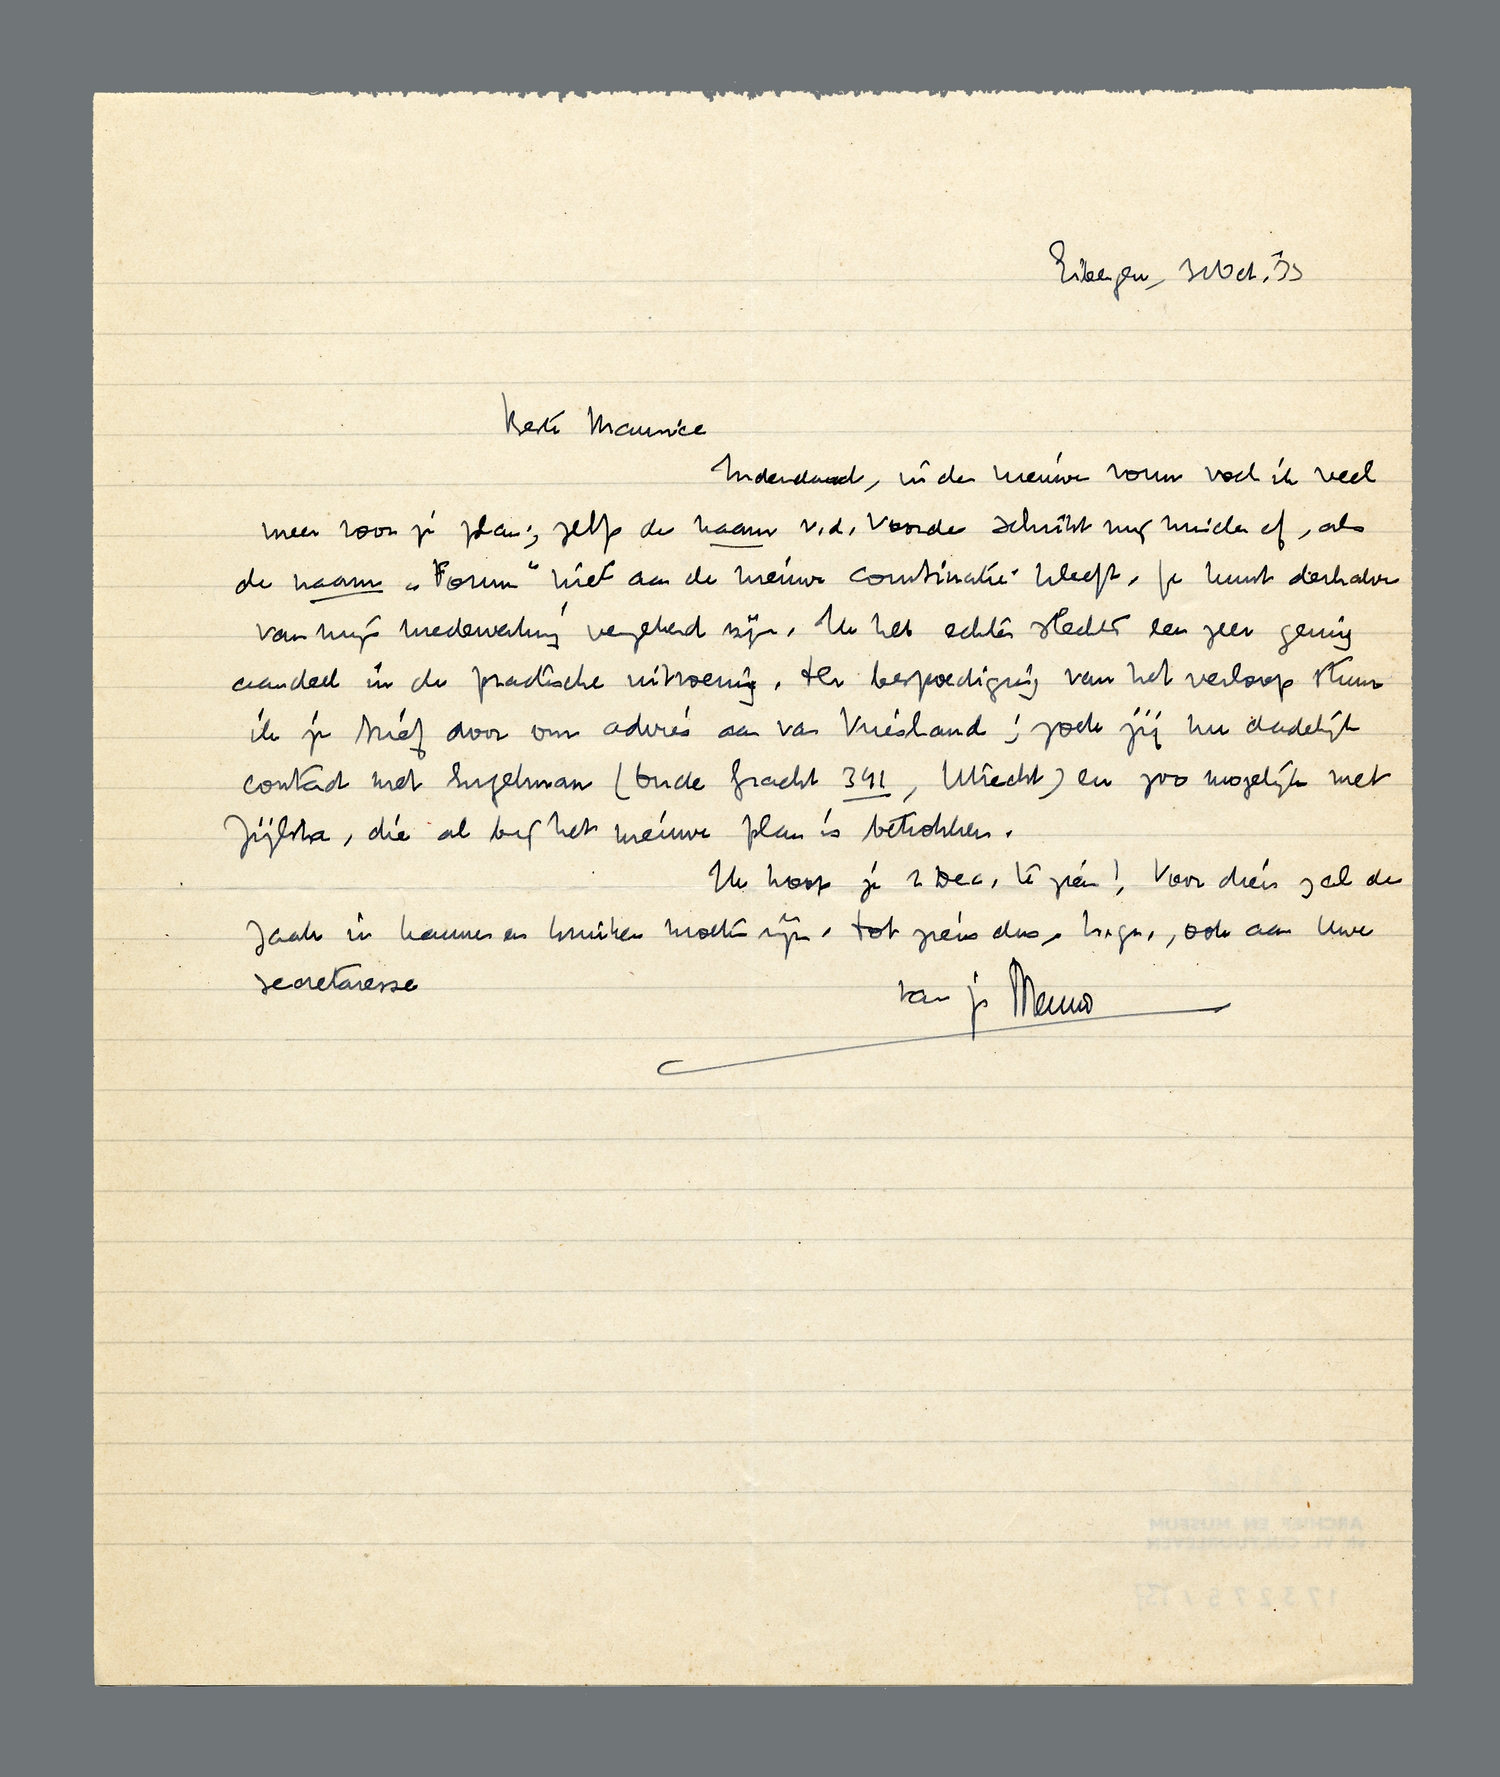 Eibergen, 31 Oct. '33
Beste Maurice
Inderdaad, in den nieuwe vorm voel ik veel
meer voor je plan; zelfs de naam v.d. Voorde schrikt mij minder af, als
de naam „Forum" niet aan de nieuwe combinatie kleeft. Je kunt derhalve
van mijn medewerking verzekerd zijn. Ik heb echter slechts een zeer gering
aandeel in de practische uitvoering. Ter bespoediging van het verloop stuur
ik je brief door om advies aan van Vriesland; zoek jij nu dadelijk
contact met Engelman (Oude Gracht 341, Utrecht) en zoo mogelijk met
Zijlstra, die al bij het nieuwe plan is betrokken.
Ik hoop je 2 Dec. te zien! Voor dien zal de
zaak in kannen en kruiken moeten zijn. Tot ziens dus, h.gr., ook aan Uwe
secretaresse
van je Menno
ARCHIEF EN MUSEUM
VH VL CULTUURLEVEN
173275 /